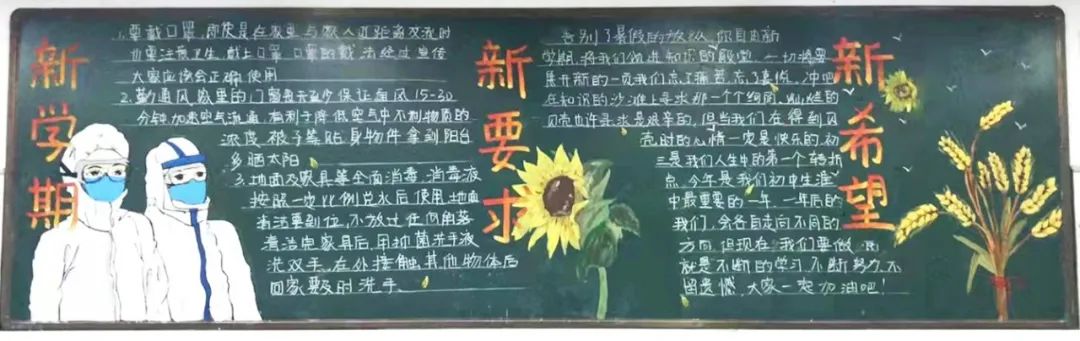 新学期
1.要戴口罩,即使是在教室与数人近距离交流时
也要注意卫生,戴上口罩,口罩的戴法经过宣传
大家应该会正确使用
2.勤通风,家里的门窗每天至少保证通风15-30
分钟加速空气流通,有利于降低空气中不利物质的
浓度,被子等贴身物件拿到阳台
多晒太阳
3.地面及家具等全面消毒,消毒液
按照一定比例兑水后使用,地面
清洁要到位,不放过任何角落
清洁完家具后,用抑菌洗手液
洗双手,在外接触其他物体后
回家要及时洗手、
新要求
告别了暑假的放纵,你自由新
学期,将我们领进知识的殿堂,一切将要
展开新的一页我们忘了痛苦,忘了喜悦,冲吧
在知识的沙滩上寻求那一个个绚丽、灿烂的
贝壳也许寻求是艰辛的,但当我们在得到贝
壳时的心情一定是快乐的,初
三是我们人生中的第一个转折
点,今年是我们初中生涯
中最重要的一年,一年后的
我们,会各自走向不同的
方向,但现在我们要做的
就是不断的学习,不断努力,不
留遗憾,大家一定加油吧!
新希望